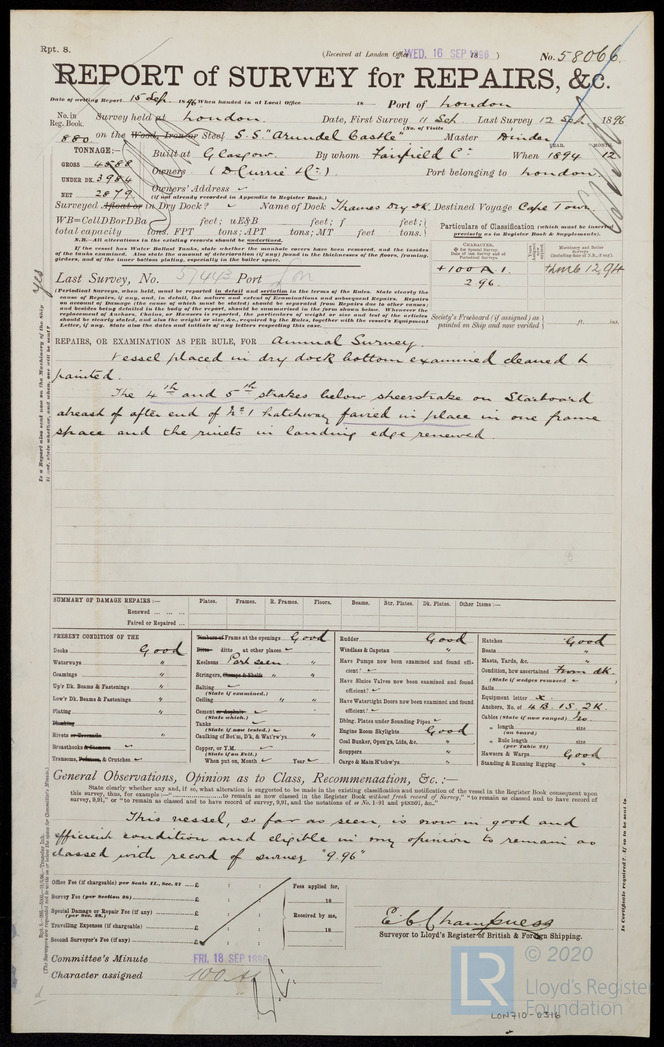 Rpt. 8.
(Received at London Office WED. 16 SEP 1896 )
No. 58066
REPORT of SURVEY for REPAIRS, &c.
Date of writing Report 15 Sep 1896 When handed in at Local Office 18 Port of London
No. in Reg. Book. Survey held at London. Date, First Survey 11 Sep Last Survey 12 Sep 1896
(No. of Visits
880. on the Wood, Iron or Steel S.S. "Arundel Castle" Master Hinder
TONNAGE:— Built at Glasgow. By whom Fairfield Co. When 1894 12
YEAR. MONTH.
GROSS 4588
UNDER DK. 3984
NET 2879
Owners (D Currie & Co.). Port belonging to London
Owners' Address
(if not already recorded in Appendix to Register Book.)
Surveyed Afloat or in Dry Dock? Name of Dock Thames Dry Dk. Destined Voyage Cape Town
WB=CellDBorDBa feet; uE&B feet; f feet;
total capacity tons. FPT tons; APT tons; MT feet tons.
Particulars of Classification (which must be inserted precisely as in Register Book & Supplements).
N.B.—All alterations in the existing records should be underlined.
If the vessel has Water Ballast Tanks, state whether the manhole covers have been removed, and the insides of the tanks examined. Also state the amount of deterioration (if any) found in the thicknesses of the floors, framing, girders, and of the inner bottom plating, especially in the boiler space.
+100 A 1.
2 96.
Last Survey, No. 57443 Port Lon
(Periodical Surveys, when held, must be reported in detail and seriatim in the terms of the Rules. State clearly the cause of Repairs, if any, and, in detail, the nature and extent of Examinations and subsequent Repairs. Repairs on account of Damage (the cause of which must be stated) should be separated from Repairs due to other causes; and besides being detailed in the body of the report, should be summarised in the form shown below. Whenever the replacement of Anchors, Chains, or Hawsers is reported, the particulars of weight or size and test of the same should be clearly stated, and also the weight or size, &c., required by the Rules, together with the vessel's Equipment Letter, if any. State also the dates and initials of any letters respecting this case.
Society's Freeboard (if assigned) as painted on Ship and now verified ft. ins.
Yes
REPAIRS, OR EXAMINATION AS PER RULE, FOR Annual Survey.
Vessel placed in dry dock bottom examined cleaned &
painted.
The 4th and 5th strakes below sheerstrake on Starboard
abreast of after end of No 1 hatchway faired in place in one frame
space and the rivets in landing edge renewed.
SUMMARY OF DAMAGE REPAIRS:— Plates. Frames. R. Frames. Floors. Beams. Str. Plates. Dk. Plates. Other Items:—
Renewed ... ... ...
Faired or Repaired ...
PRESENT CONDITION OF THE
Decks Good
Waterways "
Coamings "
Up'r Dk. Beams & Fastenings "
Low'r Dk. Beams & Fastenings "
Plating "
Planking
Rivets or Treenails "
Breasthooks & Stemson
Transoms, Pointers, & Crutches
Timbers or Frame at the openings Good
Ditto ditto at other places
Keelsons Part seen
Stringers, Clamps & Shelfs "
Salting
(State if examined.)
Ceiling "
Cement or Asphalt
(State which.)
Tanks
(State if now tested.)
Caulking of Bot'm, Dk, & Wat'rw'ys "
Copper, or Y.M.
(State if on Felt.)
When put on, Month Year
Rudder Good
Windlass & Capstan "
Have Pumps now been examined and found efficient?
Have Sluice Valves now been examined and found efficient?
Have Watertight Doors now been examined and found efficient?
Dblng. Plates under Sounding Pipes
Engine Room Skylights Good
Coal Bunker, Open'gs, Lids, &c. "
Scuppers "
Cargo & Main H'tchw'ys "
Hatches Good
Boats "
Masts, Yards, &c. "
Condition, how ascertained From dk.
(State if wedges removed
Sails
Equipment letter x.
Anchors, No. of 4B. 1S. 2K.
Cables (State if now ranged) No.
" length size
(on board)
" Rule length size
(per Table 22)
Hawsers & Warps Good
Standing & Running Rigging "
General Observations, Opinion as to Class, Recommendation, &c.:—
State clearly whether any, and if so, what alteration is suggested to be made in the existing classification and notification of the vessel in the Register Book consequent upon this survey, thus, for example:—" to remain as now classed in the Register Book without fresh record of Survey," "to remain as classed and to have record of survey, 9,91," or "to remain as classed and to have record of survey, 9,91, and the notations of
This vessel, so far as seen, is now in good and
efficient condition and eligible in my opinion to remain as
classed with record of survey "9.96"
Office Fee (if chargeable) per Scale II., Sec. 27 £ : :
Survey Fee (per Section 28) £ : :
Special Damage or Repair Fee (if any) £ : :
(per Sec. 28.)
Travelling Expenses (if chargeable) £ : :
Second Surveyor's Fee (if any) £ : :
Fees applied for,
18
Received by me,
18
E C Champness
Surveyor to Lloyd's Register of British & Foreign Shipping.
Committee's Minute FRI. 18 SEP 1896
Character assigned 100 A1
© 2020
LR Lloyd's Register Foundation
LON710-0316